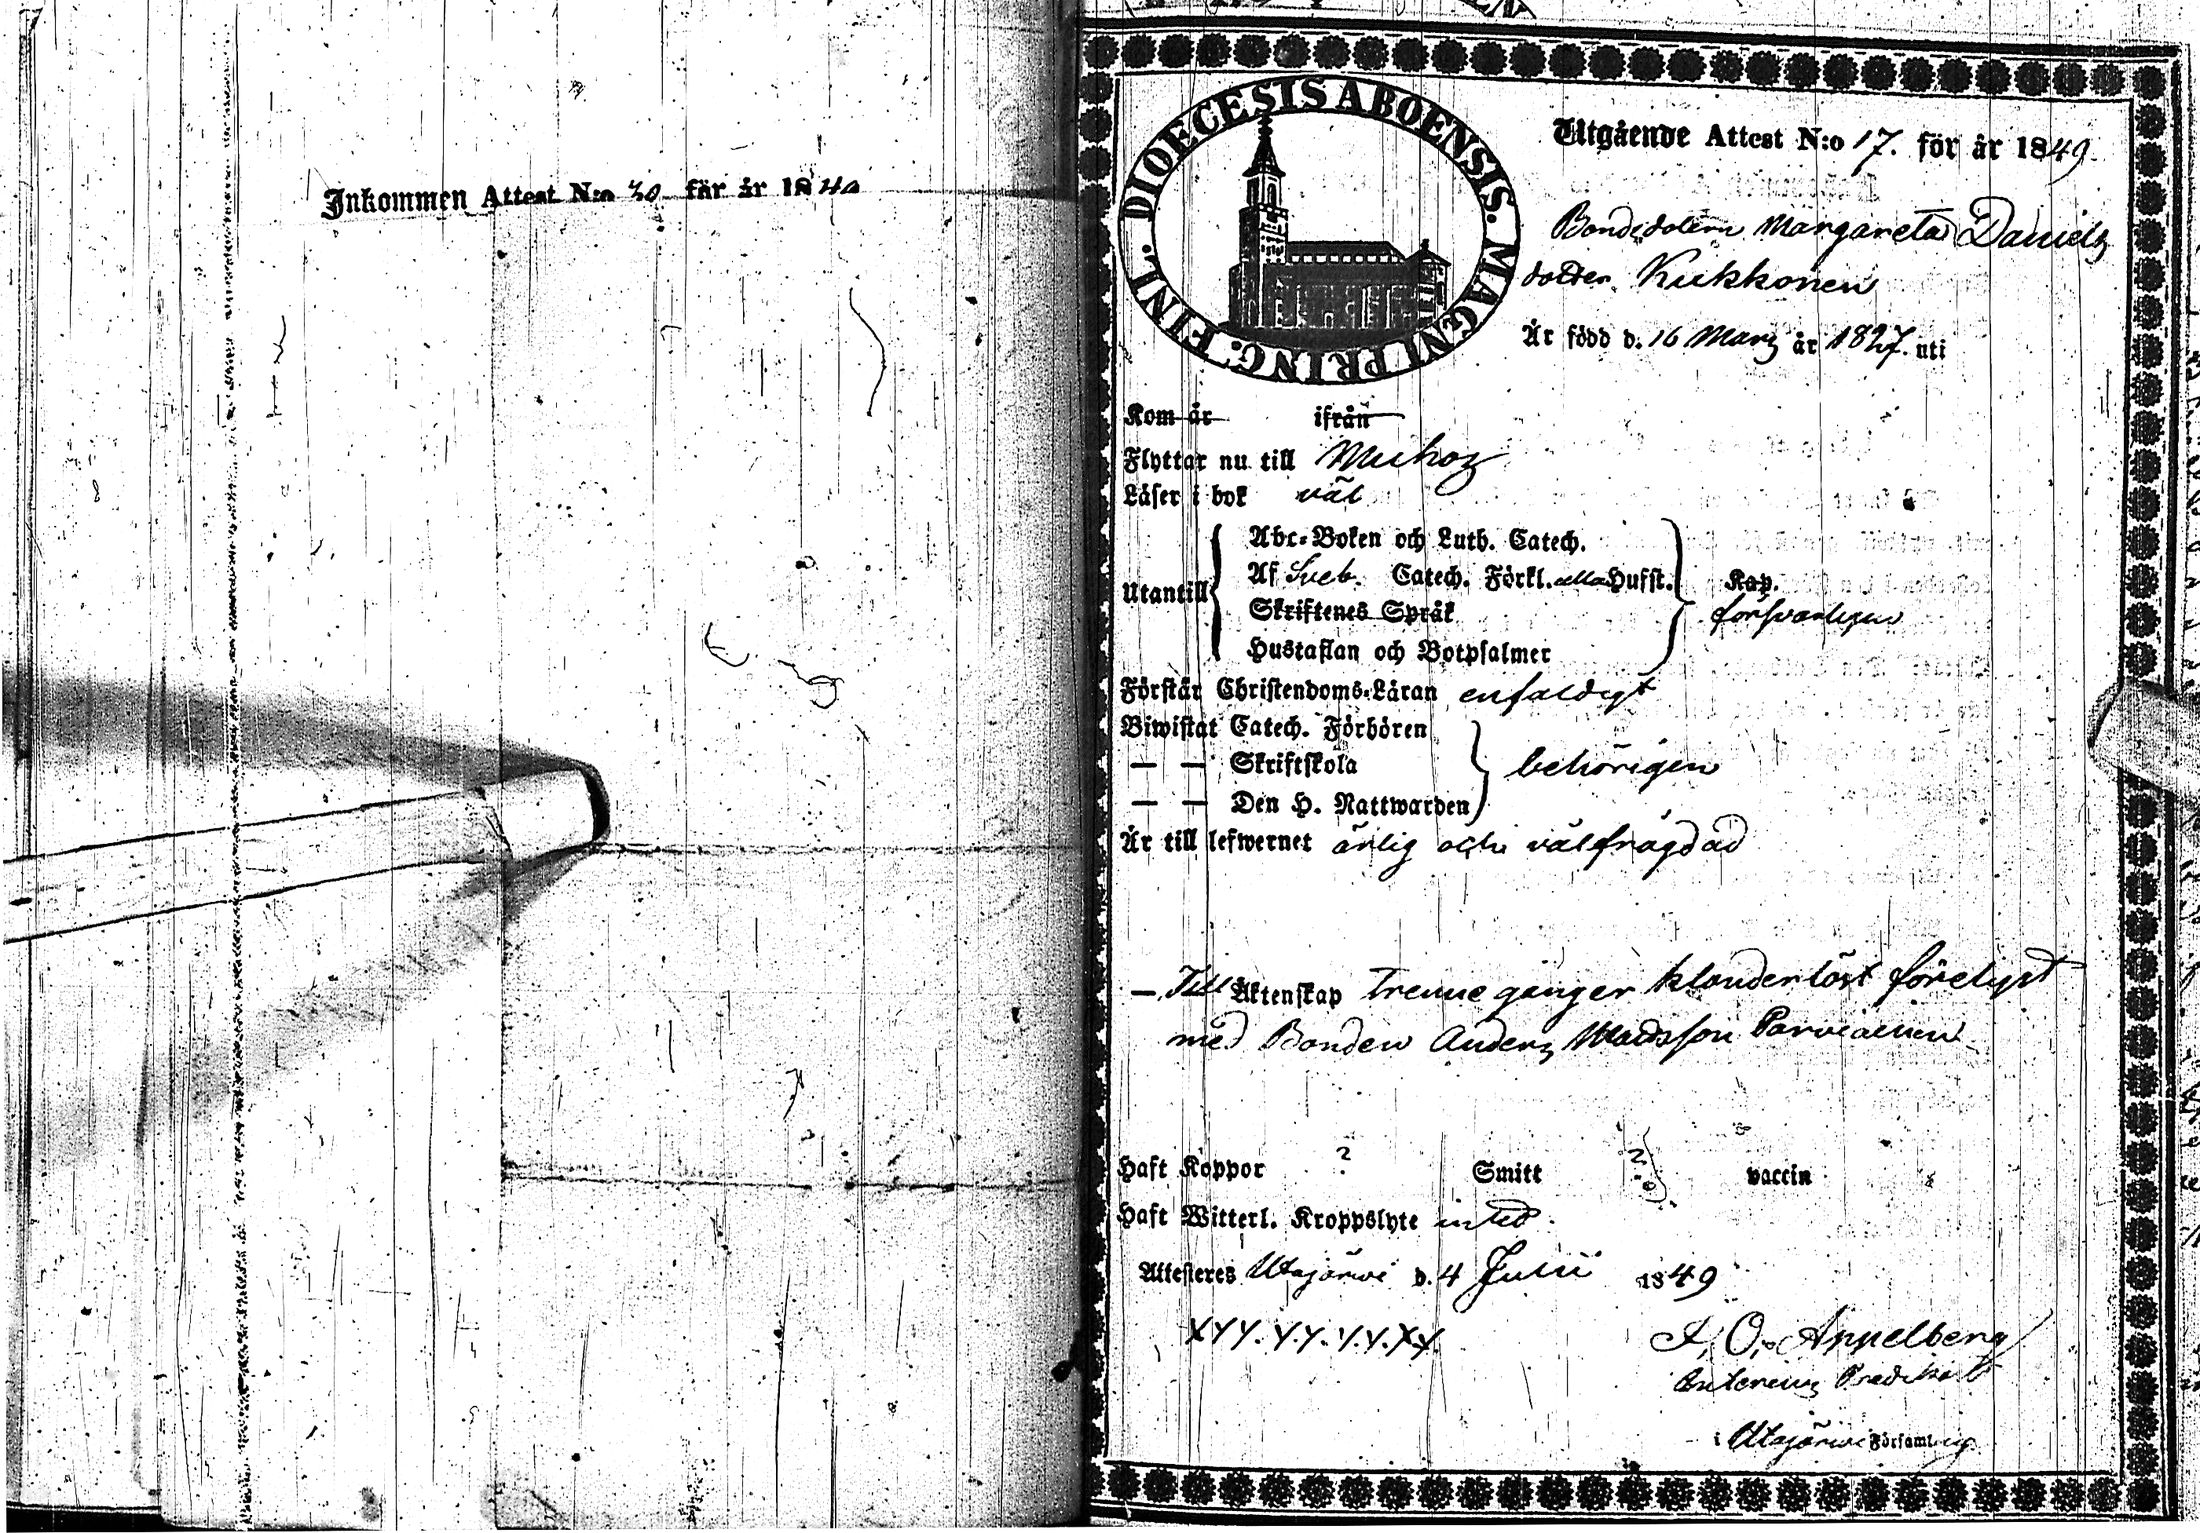 Inkommen Attest N:o 30 för år 18
DIOECESIS ABOENSIS. MAGNI PRINC. FINL.
Utgående Attest N:o 17. för år 1849.
Bondedotern Margareta Daniels
dotter Kukkonen
Är född d. 16 Mars år 1827. uti
Kom år ifrån
Flyttar nu till Muhos
Läser i bok väl
Utantill
Abc-Boken och Luth. Catech.
Af Sveb. Catech. Förkl. alla Hufst. Kap.
Skriftenes Språk försvarligen
Hustaflan och Botpsalmer
Förstår Christendoms-Läran enfaldigt
Biwistat Catech. Förhören
— — Skriftskola behörigen
— — Den H. Nattwarden
Är till lefwernet ärlig och välfrägdad
— Till Äktenskap trenne gånger klanderlöst förelyst
med Bonden Anders Madsson Parviainen
Haft Koppor ? Smitt ? vaccin
Haft Witterl. Kroppslyte intet.
Attesteras Utajärwi d. 4 Julii 1849
A. O. Appelberg
i Utajärwi Församling